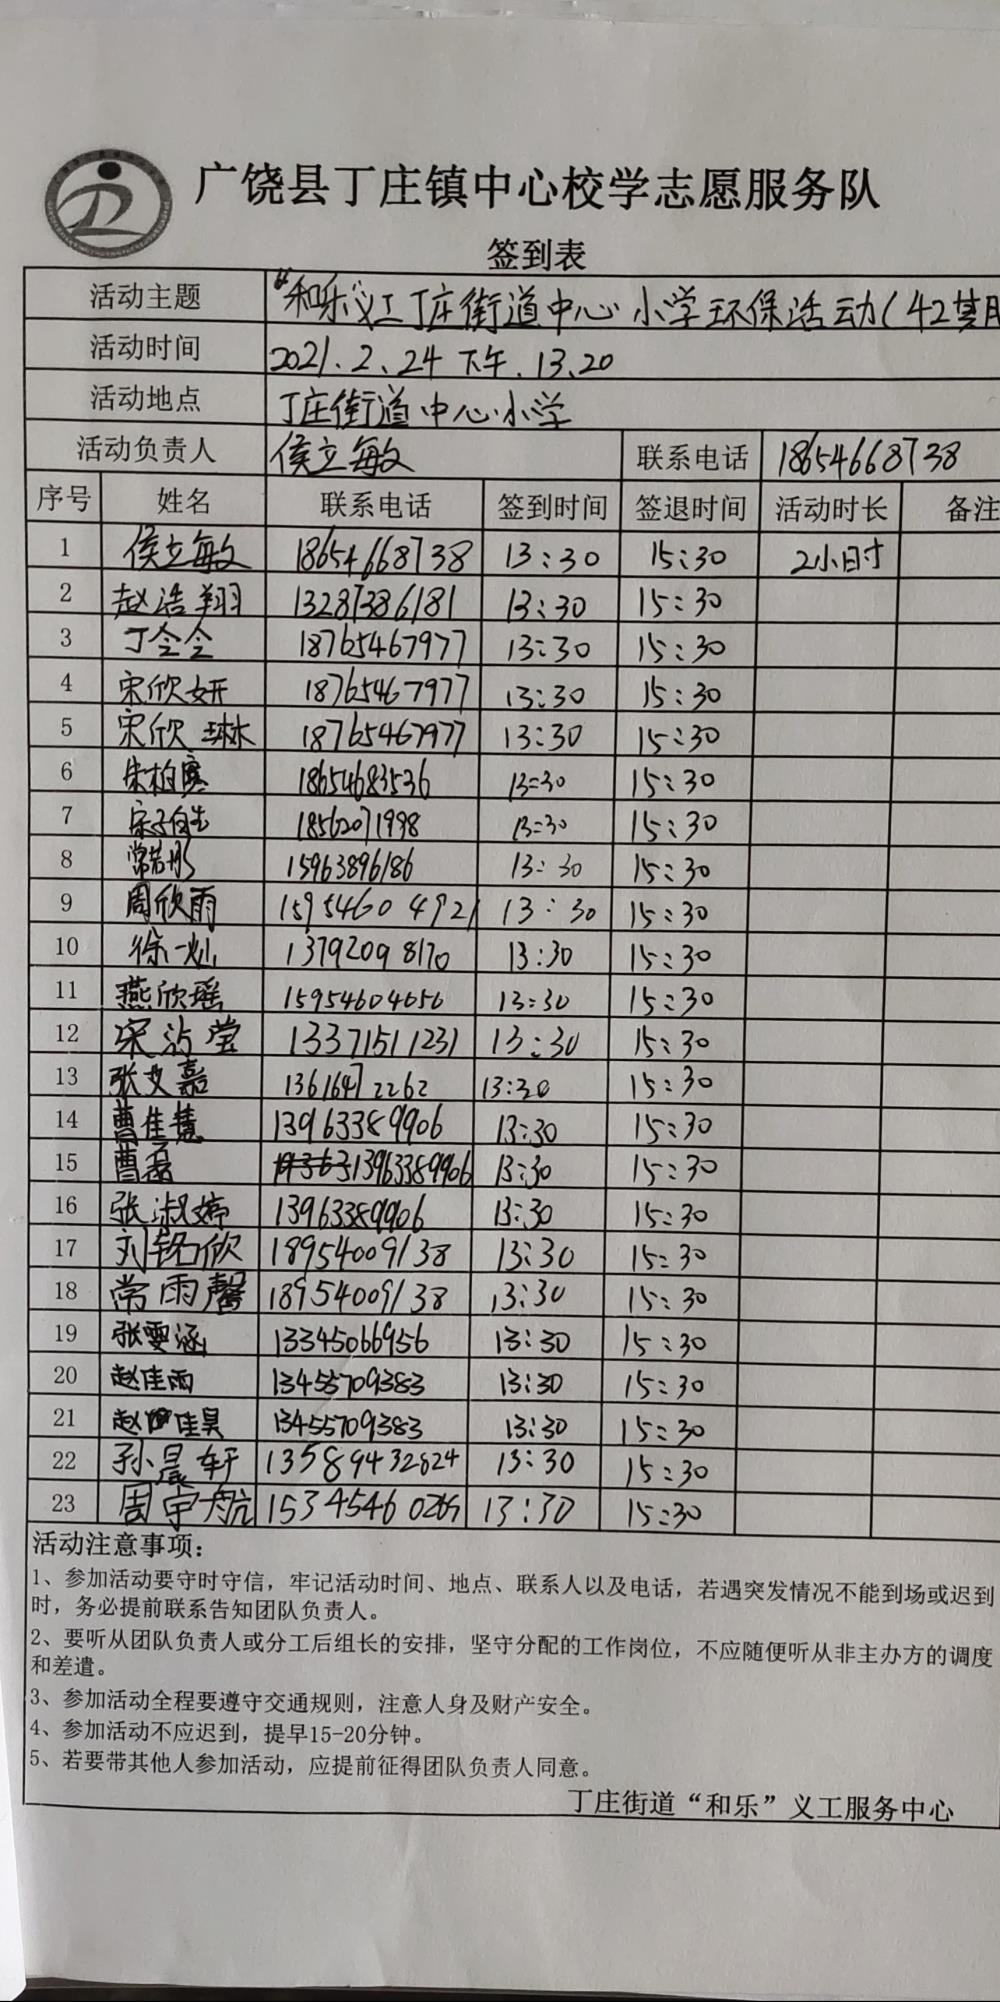 广饶县丁庄镇中心校学志愿服务队
签到表
活动主题 “和乐”义工丁庄街道中心小学环保活动(42期
活动时间 2021.2.24 下午.13.20
活动地点 丁庄街道中心小学
活动负责人 侯立敏 联系电话 18654668738
序号 姓名 联系电话 签到时间 签退时间 活动时长 备注
1 侯立敏 18654668738 13:30 15:30 2小时
2 赵浩翔 13287386181 13:30 15:30
3 丁令令 18765467977 13:30 15:30
4 宋欣妍 18765467977 13:30 15:30
5 宋欣琳 18765467977 13:30 15:30
6 朱柏宽 18654683536 13:30 15:30
7 宋子自生 18562071998 13:30 15:30
8 常若彤 15963896186 13:30 15:30
9 周欣雨 15954604921 13:30 15:30
10 徐一灿 13792098170 13:30 15:30
11 燕欣瑶 15954604656 13:30 15:30
12 宋沂莹 13371511231 13:30 15:30
13 张艾嘉 13616472262 13:30 15:30
14 曹佳慧 13963389906 13:30 15:30
15 曹磊 13963389906 13:30 15:30
16 张淑婷 13963389906 13:30 15:30
17 刘铭欣 18954009138 13:30 15:30
18 常雨馨 18954009138 13:30 15:30
19 张雯涵 13345066956 13:30 15:30
20 赵佳雨 13455709383 13:30 15:30
21 赵佳昊 13455709383 13:30 15:30
22 孙晨轩 13589432824 13:30 15:30
23 周宇航 15345460265 13:30 15:30
活动注意事项：
1、参加活动要守时守信，牢记活动时间、地点、联系人以及电话，若遇突发情况不能到场或迟到
时，务必提前联系告知团队负责人。
2、要听从团队负责人或分工后组长的安排，坚守分配的工作岗位，不应随便听从非主办方的调度
和差遣。
3、参加活动全程要遵守交通规则，注意人身及财产安全。
4、参加活动不应迟到，提早15-20分钟。
5、若要带其他人参加活动，应提前征得团队负责人同意。
丁庄街道“和乐”义工服务中心